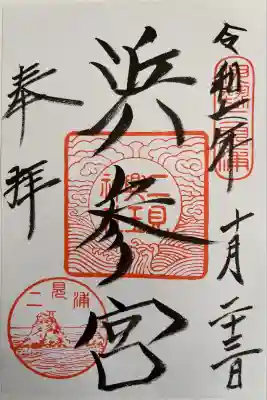 令和五年十月二十三日
伊勢二見浦
浜参宮
二見興玉神社
奉拝
二見浦